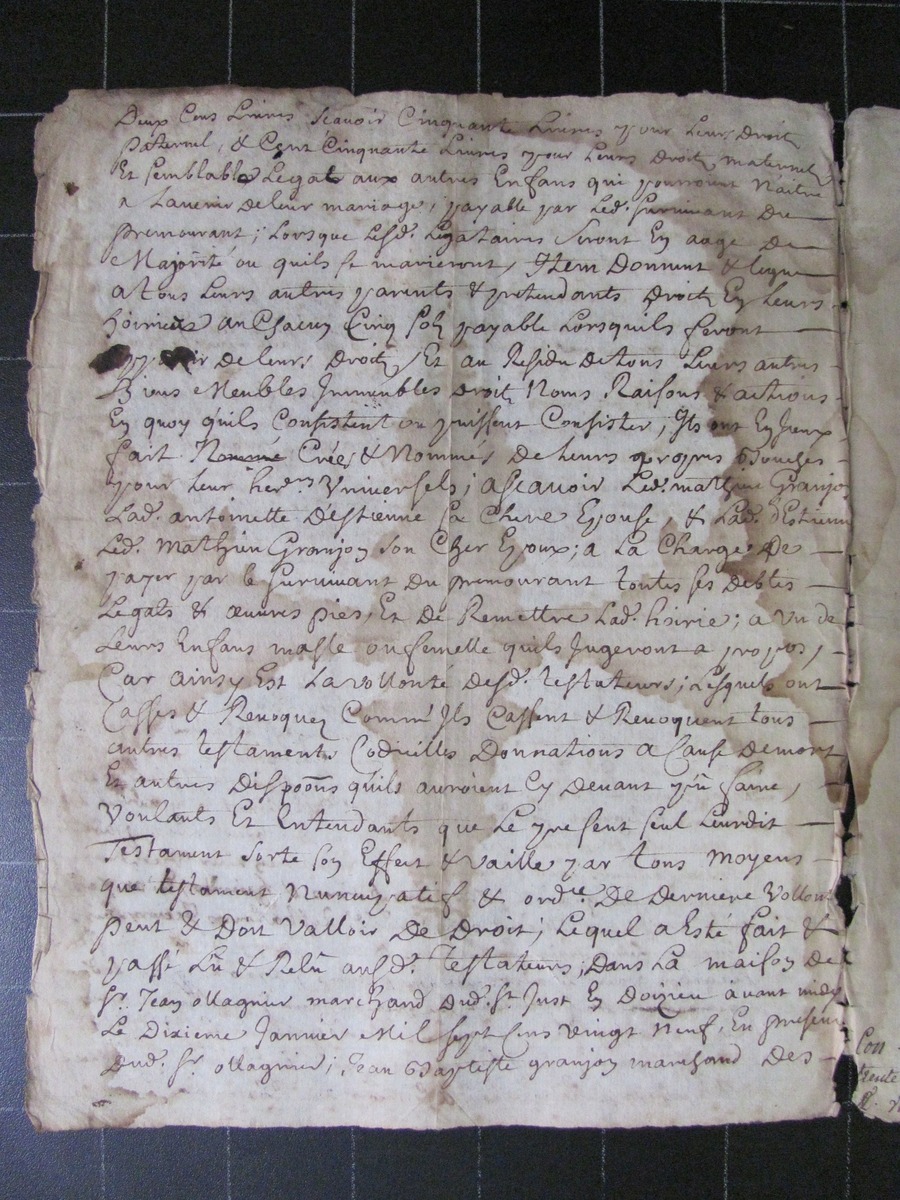 Deux Cens Livres Scavoir Cinquante Livres pour Leur Droit
Paternel, & Cent Cinquante Livres pour Leurs Droit maternel
Et semblable Legat aux autres Enfans qui pourront Naitre
a Lavenir de leur mariage, payable par Led. Survivant du
premourant; Lorsque Lesd. Legataires Seront En aage De
Majorité ou quils se marieront, Item Donnent & legue
a tous Leurs autres parents & pretendants Droit En Leurs
hoiries a un Chacun Cinq sols payable Lorsquils feront
de leurs Droit, Et au Residu de tous Leurs autres
Biens Meubles Immeubles Droit Noms Raisons & actions
En quoy quils Consistent ou puissent Consister, Ils ont Eux
fait Nommé Créés & Nommés de Leurs propres Bouches
pour leur hers. Vniversels; ascavoir Led. mathieu Granjon
Lad. antoinette Destienne sa Chere Epouse, & Lad. Destienne
Led. Mathieu Granjon son Cher Epoux; a La Charge De
payer par le Survivant du premourant toutes ses Debtes
Legats & œuvres pies, Et De Remettre Lad. hoirie; a Vn de
Leurs Enfans masle ou femelle quils Jugeront a propos,
Car ainsy Est La vollonté desd. testateurs; Lesquels ont
Cassés & Revoquez Comm' Ils Cassent & Revoquent tous
autres testaments Codicilles Donnations a Cause de mort
Et autres Dispoons quils auroient Cy Devant pû faire,
Voulants Et Entendants que Le present seul Leurdit
Testament sorte son Effect & Vaille par tous moyens
que testament Nuncupatif & ordre. De Derniere Vollonté
peut & Doit Valloir De Droit; Lequel a Esté fait &
passé Lû & Relû ausd. Testateurs; Dans La maison De
Sr. Jean ollagnier marchand dud. St Just En Doizieu avant midy
Le Dixieme Janvier Mil sept Cens vingt Neuf, En presence
Dud. Sr. ollagnier; Jean Baptiste granjon marchand Des
Con
trente